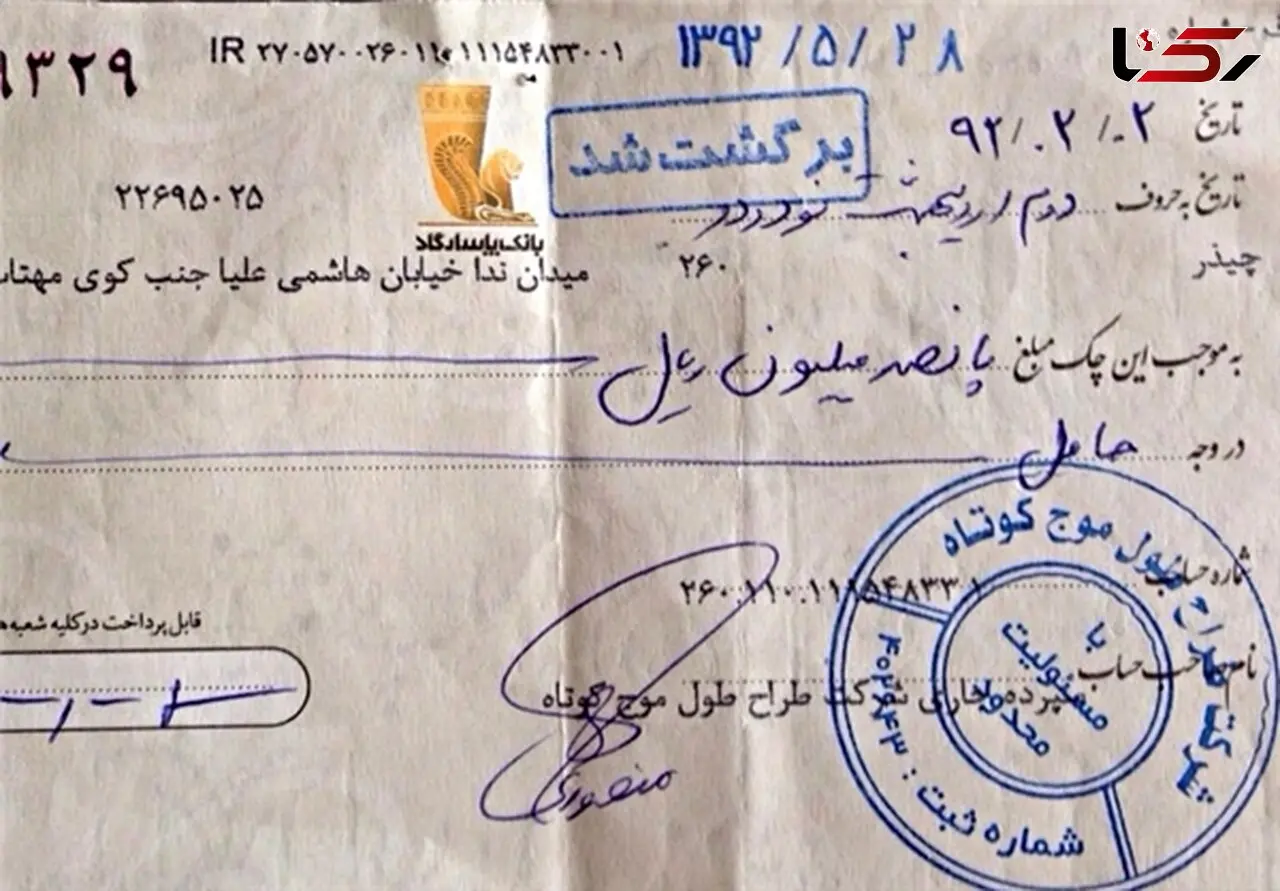 رکنا
۱۳۹۲/۵/۲۸
IR ۲۷۰۵۷۰۰۲۶۰۱۱۰۱۱۱۵۴۸۳۳۰۰۱
۹۳۲۹
تاریخ ۹۲/۰۲/۰۲
برگشت شد
تاریخ به حروف دوم اردیبهشت نود و دو
۲۲۶۹۵۰۲۵
بانک پاسارگاد
چیذر ۲۶۰
میدان ندا خیابان هاشمی علیا جنب کوی مهتاب
به موجب این چک مبلغ پانصد میلیون ریال
در وجه حامل
شماره حساب ۲۶۰.۱۱۰.۱۱۱۵۴۸۳۳.۱
قابل پرداخت در کلیه شعبه
نام صاحب حساب
سپرده جاری شرکت طراح طول موج کوتاه
منصوری
شرکت طراح طول موج کوتاه
با مسئولیت محدود
شماره ثبت :